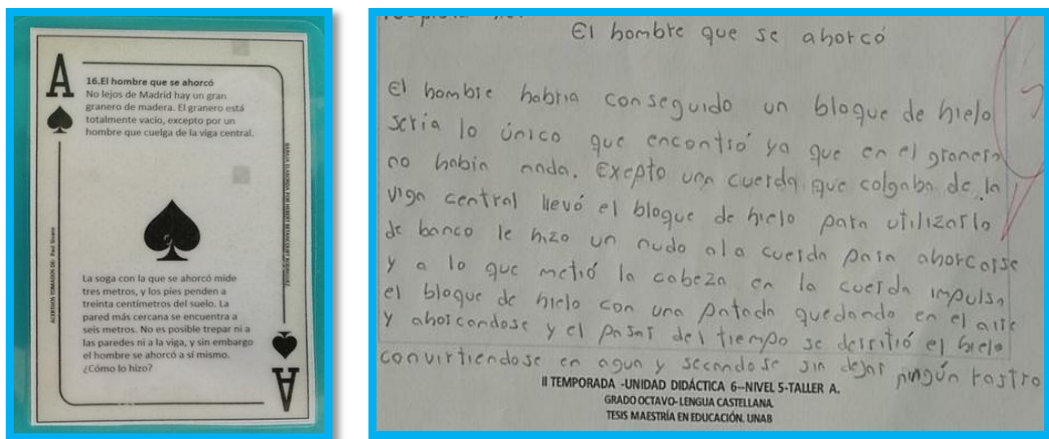 A
16.El hombre que se ahorcó
No lejos de Madrid hay un gran
granero de madera. El granero está
totalmente vacío, excepto por un
hombre que cuelga de la viga central.
La soga con la que se ahorcó mide
tres metros, y los pies penden a
treinta centímetros del suelo. La
pared más cercana se encuentra a
seis metros. No es posible trepar ni a
las paredes ni a la viga, y sin embargo
el hombre se ahorcó a sí mismo.
¿Cómo lo hizo?
A
El hombre que se ahorcó
El hombre habria conseguido un bloque de hielo
seria lo único que encontró ya que en el granero
no habia nada. Exepto una cuerda que colgaba de la
viga central llevó el bloque de hielo para utilizarlo
de banco le hizo un nudo ala cuerda para ahorcarse
y a lo que metió la cabeza en la cuerda impulsa
el bloque de hielo con una patada quedando en el aire
y ahorcandose y el pasar del tiempo se derritió el hielo
convirtiendose en agua y secandose sin dejar ningún rastro
II TEMPORADA -UNIDAD DIDÁCTICA 6--NIVEL 5-TALLER A.
GRADO OCTAVO- LENGUA CASTELLANA.
TESIS MAESTRÍA EN EDUCACIÓN. UNAB